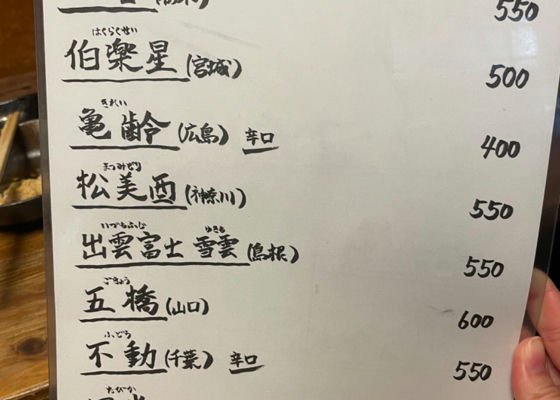 550
はくらくせい
伯楽星(宮城) 500
きれい
亀齢(広島) 辛口 400
まつみどり
松美酉(神奈川) 550
いづもふじ ゆきも
出雲富士 雪雲(島根) 550
ごきょう
五橋(山口) 600
ふどう
不動(千葉) 辛口 550
たびか